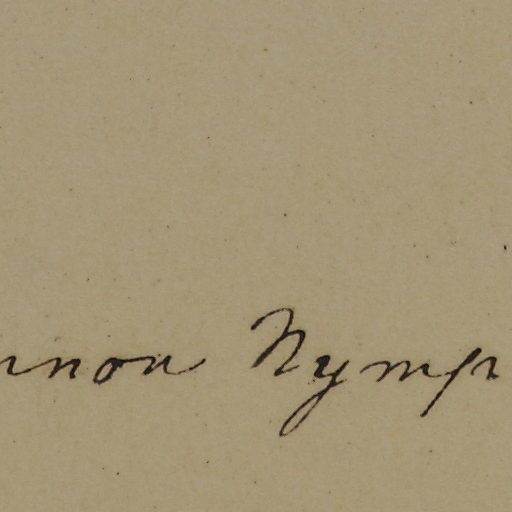 nnon Nymp